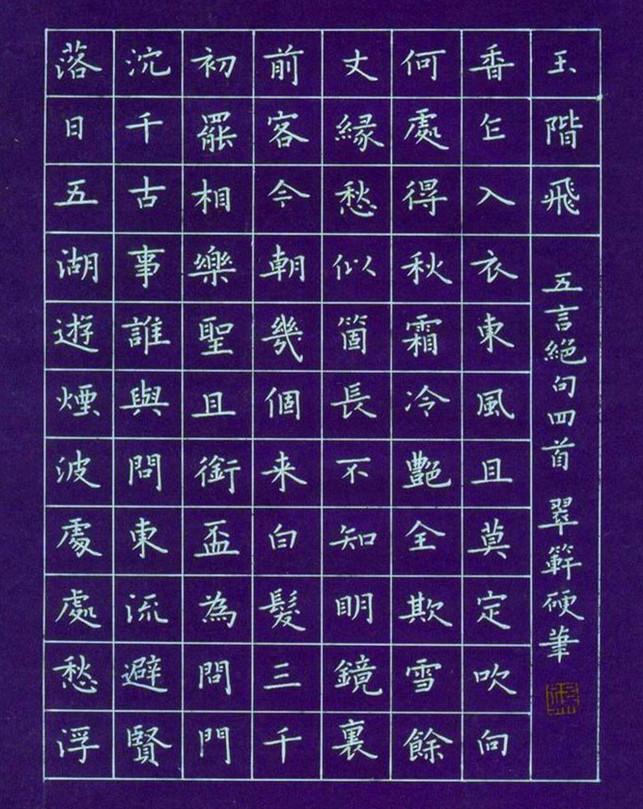 落日五湖遊煙波處處愁浮
沉千古事誰與問東流避賢
初罷相樂聖且銜盃為問門
前客今朝幾個来白髮三千
丈縁愁似箇長不知明鏡裏
何處得秋霜冷艷全欺雪餘
香乍入衣東風且莫定吹向
玉階飛
五言絕句四首 翠硬筆